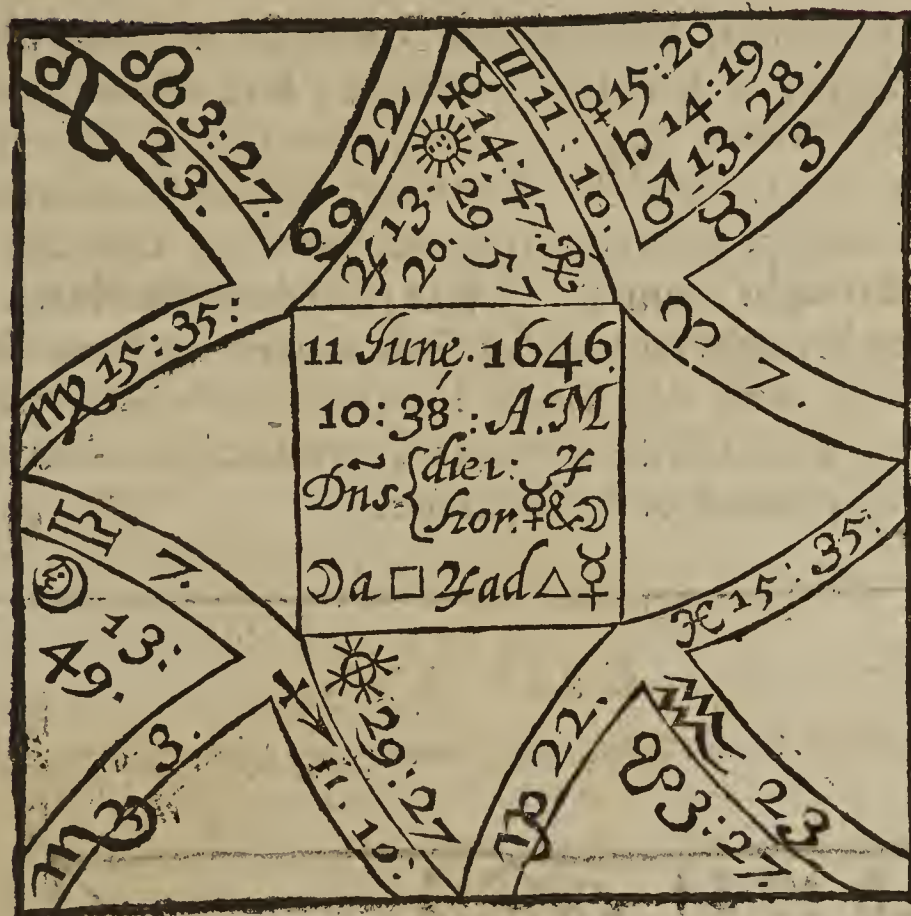 ♌ 23.
☊ 3:27.
♋ 22
☿ 14:47. ℞
☉ 29.57
♃ 13:20.
♊ 11:10.
♀ 15:20
♄ 14:19
♂ 13.28.
♉ 3
♈ 7.
♍ 15:35:
11 June. 1646
10:38: A.M
Dn̄s { diei: ♃
hor. ☿ & ☽
☽ a □ ♃ ad △ ☿
♎ 7.
☽ 13:49.
♏ 3.
♐ 11.10:
⊗ 29:27
♑ 22.
☋ 3:27.
♒ 23
♓ 15:35: